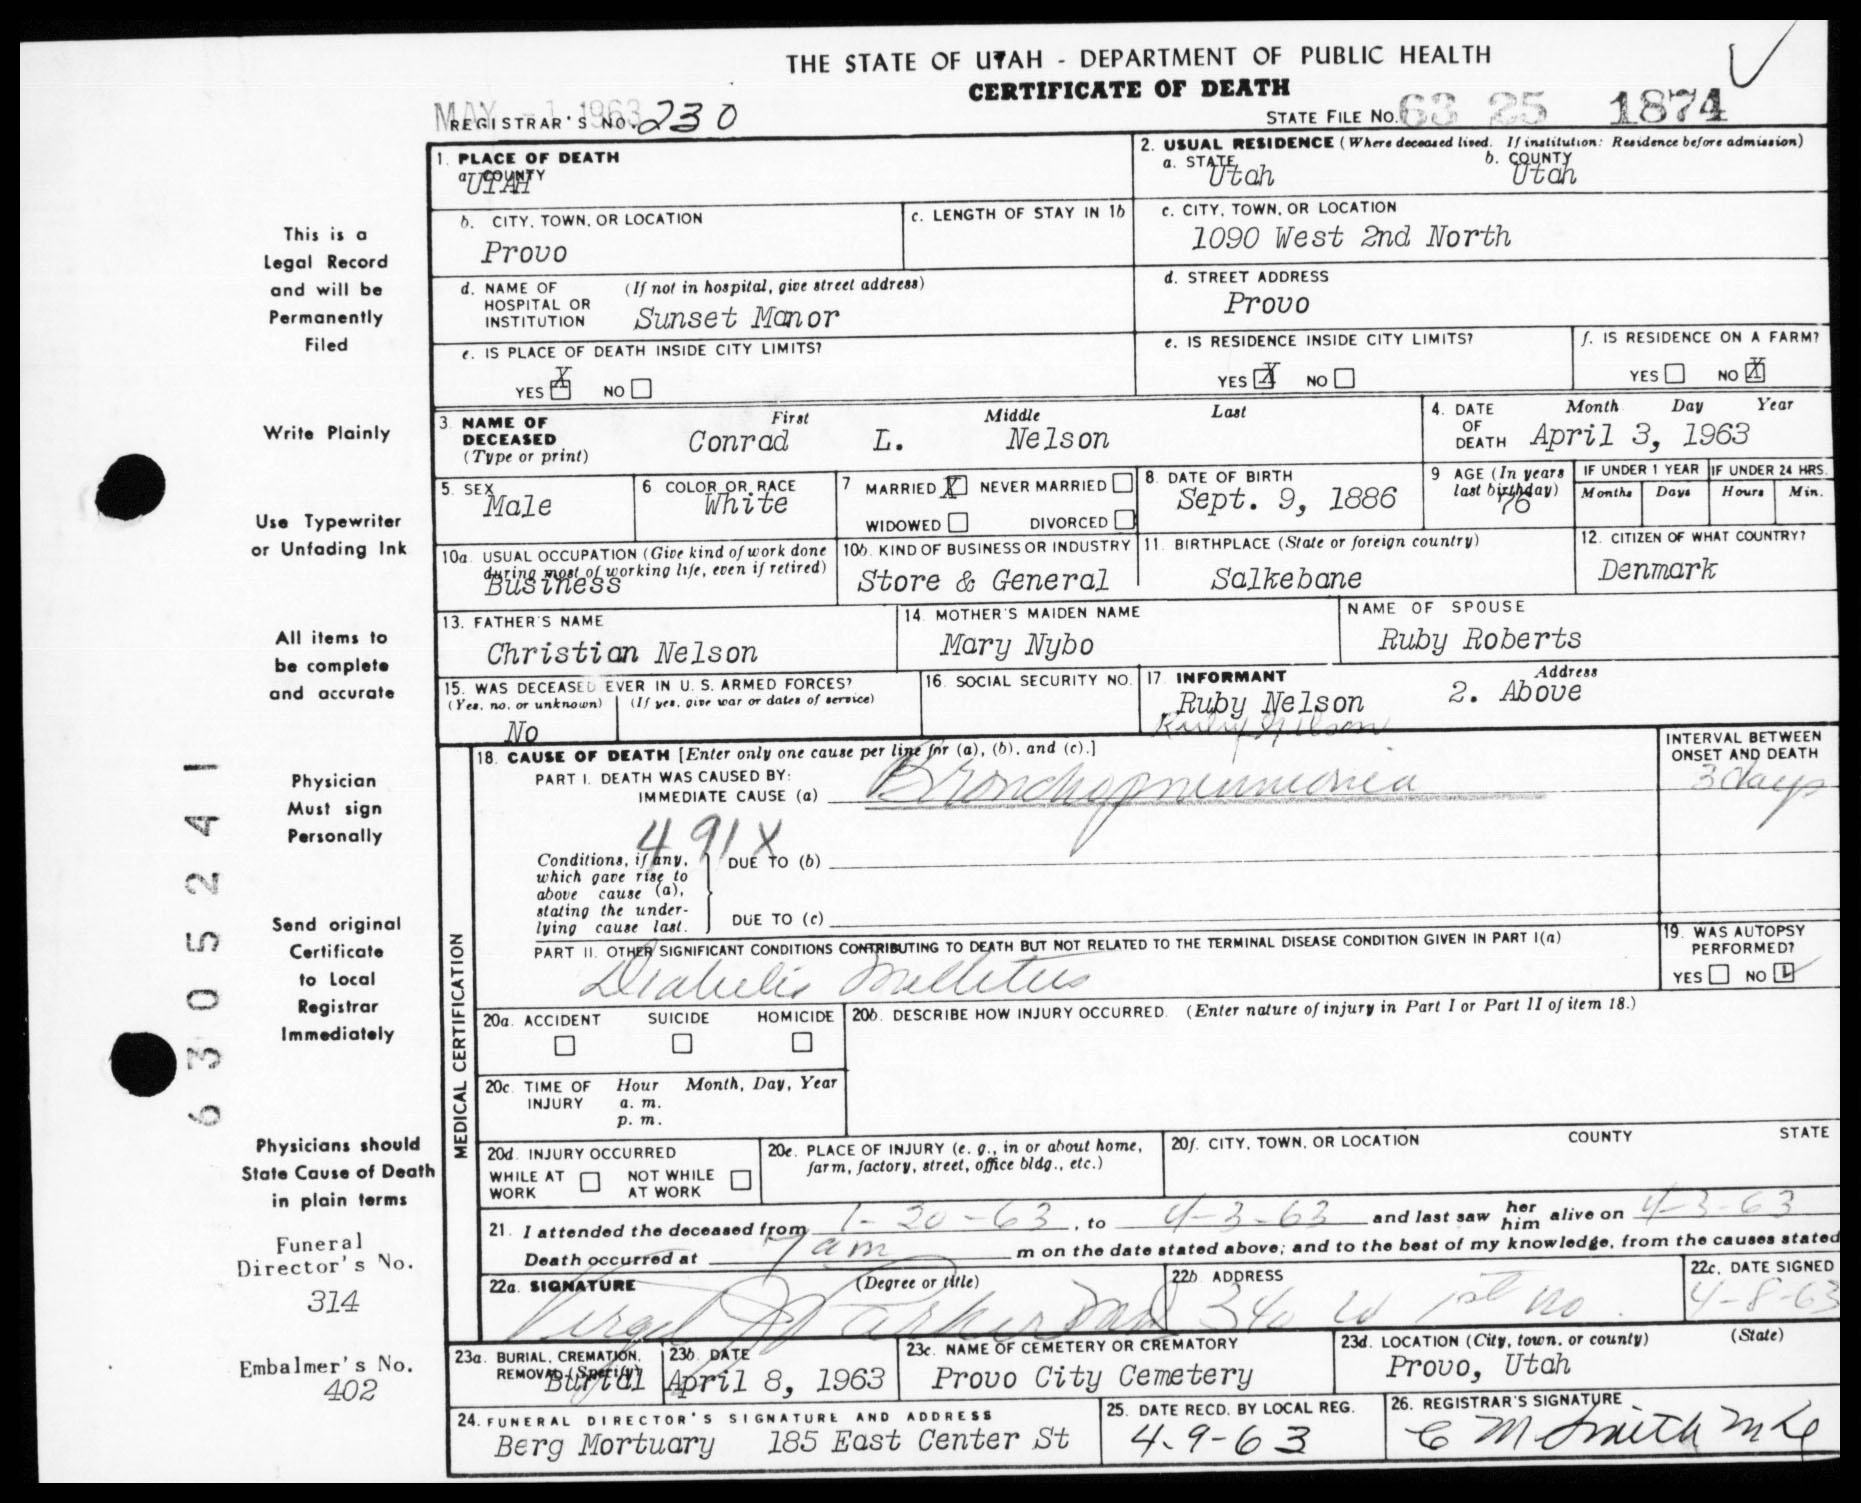 THE STATE OF UTAH - DEPARTMENT OF PUBLIC HEALTH
CERTIFICATE OF DEATH
MAY -1 1963
REGISTRAR'S NO. 230
STATE FILE NO. 63 25 1874
1. PLACE OF DEATH
a. COUNTY
UTAH
2. USUAL RESIDENCE (Where deceased lived. If institution: Residence before admission)
a. STATE Utah
b. COUNTY Utah
b. CITY, TOWN, OR LOCATION
Provo
c. LENGTH OF STAY IN 1b
c. CITY, TOWN, OR LOCATION
1090 West 2nd North
d. NAME OF HOSPITAL OR INSTITUTION
(If not in hospital, give street address)
Sunset Manor
d. STREET ADDRESS
Provo
e. IS PLACE OF DEATH INSIDE CITY LIMITS?
YES X NO
e. IS RESIDENCE INSIDE CITY LIMITS?
YES X NO
f. IS RESIDENCE ON A FARM?
YES NO X
3. NAME OF DECEASED (Type or print)
First Middle Last
Conrad L. Nelson
4. DATE OF DEATH
Month Day Year
April 3, 1963
5. SEX
Male
6 COLOR OR RACE
White
7 MARRIED X NEVER MARRIED
WIDOWED DIVORCED
8. DATE OF BIRTH
Sept. 9, 1886
9 AGE (In years last birthday)
76
IF UNDER 1 YEAR
Months Days
IF UNDER 24 HRS.
Hours Min.
10a. USUAL OCCUPATION (Give kind of work done during most of working life, even if retired)
Business
10b. KIND OF BUSINESS OR INDUSTRY
Store & General
11. BIRTHPLACE (State or foreign country)
Salkebane
12. CITIZEN OF WHAT COUNTRY?
Denmark
13. FATHER'S NAME
Christian Nelson
14. MOTHER'S MAIDEN NAME
Mary Nybo
NAME OF SPOUSE
Ruby Roberts
15. WAS DECEASED EVER IN U. S. ARMED FORCES?
(Yes, no, or unknown) (If yes, give war or dates of service)
No
16. SOCIAL SECURITY NO.
17. INFORMANT Address
Ruby Nelson 2. Above
Ruby Nelson
18. CAUSE OF DEATH [Enter only one cause per line for (a), (b), and (c).]
INTERVAL BETWEEN ONSET AND DEATH
PART I. DEATH WAS CAUSED BY:
IMMEDIATE CAUSE (a) Bronchopneumonia
3 days
491X
Conditions, if any, which gave rise to above cause (a), stating the underlying cause last.
DUE TO (b)
DUE TO (c)
PART II. OTHER SIGNIFICANT CONDITIONS CONTRIBUTING TO DEATH BUT NOT RELATED TO THE TERMINAL DISEASE CONDITION GIVEN IN PART I(a)
Diabetis Mellitus
19. WAS AUTOPSY PERFORMED?
YES NO
MEDICAL CERTIFICATION
20a. ACCIDENT SUICIDE HOMICIDE
20b. DESCRIBE HOW INJURY OCCURRED. (Enter nature of injury in Part I or Part II of item 18.)
20c. TIME OF INJURY
Hour Month, Day, Year
a. m.
p. m.
20d. INJURY OCCURRED
WHILE AT WORK NOT WHILE AT WORK
20e. PLACE OF INJURY (e. g., in or about home, farm, factory, street, office bldg., etc.)
20f. CITY, TOWN, OR LOCATION COUNTY STATE
21. I attended the deceased from 1-20-63, to 4-3-63 and last saw her him alive on 4-3-63
Death occurred at 7 am m on the date stated above; and to the best of my knowledge, from the causes stated
22a. SIGNATURE (Degree or title)
Virgil Parker
22b. ADDRESS
340 W 1st No.
22c. DATE SIGNED
4-8-63
23a. BURIAL, CREMATION, REMOVAL (Specify)
Burial
23b. DATE
April 8, 1963
23c. NAME OF CEMETERY OR CREMATORY
Provo City Cemetery
23d. LOCATION (City, town, or county) (State)
Provo, Utah
24. FUNERAL DIRECTOR'S SIGNATURE AND ADDRESS
Berg Mortuary 185 East Center St
25. DATE RECD. BY LOCAL REG.
4-9-63
26. REGISTRAR'S SIGNATURE
C M Smith
This is a
Legal Record
and will be
Permanently
Filed
Write Plainly
Use Typewriter
or Unfading Ink
All items to
be complete
and accurate
Physician
Must sign
Personally
Send original
Certificate
to Local
Registrar
Immediately
Physicians should
State Cause of Death
in plain terms
Funeral
Director's No.
314
Embalmer's No.
402
6305241